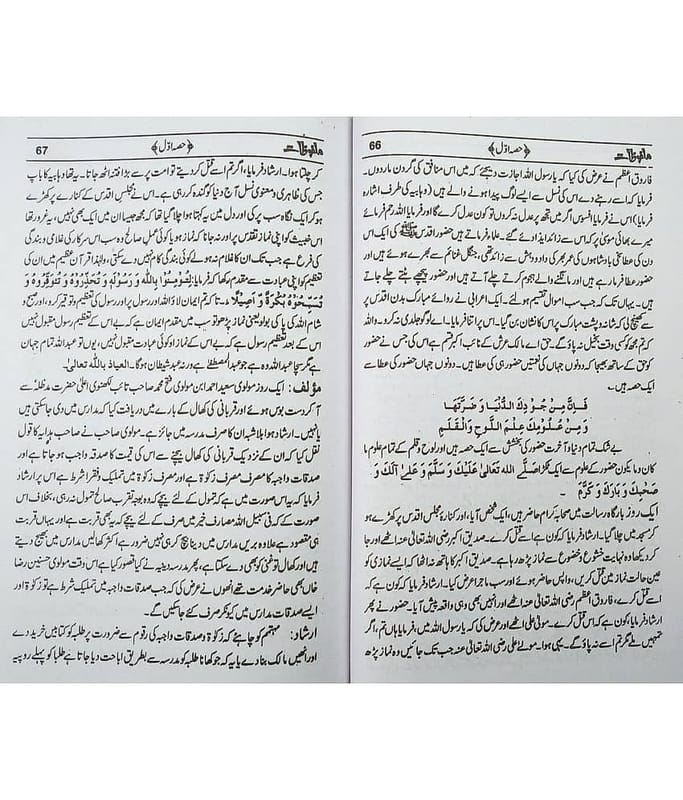 66 ﴿حصہ اوّل﴾ ملفوظات
فاروق اعظم نے عرض کی کہ یا رسول اللہ اجازت دیجئے کہ میں اس منافق کی گردن ماردوں۔
فرمایا کہ اسے رہنے دے اس کی نسل سے ایسے لوگ پیدا ہونے والے ہیں (وہابیہ کی طرف اشارہ
فرمایا) اس نے فرمایا افسوس اگر میں تجھ پر عدل نہ کروں تو کون عدل کرے گا اور فرمایا اللہ رحم فرمائے
میرے بھائی موسیٰ پر کہ اس سے زائد ایذا دیئے گئے۔ علماء فرماتے ہیں حضور اقدس ﷺ کی ایک اس
دن کی عطا تمام بادشاہوں کی عمر بھر کی داد و دہش سے زائد تھی، جنگل غنائم سے بھرے ہوئے ہیں اور
حضور عطا فرما رہے ہیں اور مانگنے والے ہجوم کرتے چلے آتے ہیں اور حضور پیچھے ہٹتے چلے جاتے
ہیں۔ یہاں تک کہ جب سب اموال تقسیم ہولئے۔ ایک اعرابی نے ردائے مبارک بدن اقدس پر
سے کھینچ لی کہ شانہ و پشت مبارک پر اس کا نشان بن گیا۔ اس پر اتنا فرمایا۔ اے لوگو جلدی نہ کرو۔ واللہ
کہ تم مجھ کو کسی وقت بخیل نہ پاؤ گے۔ حق اے مالک عرش کے نائب اکبر قسم ہے اس کی جس نے حضور
کو حق کے ساتھ بھیجا کہ دونوں جہاں کی نعمتیں حضور ہی کی عطا ہیں۔ دونوں جہاں حضور کی عطا سے
ایک حصہ ہیں۔
فَاِنَّ مِنْ جُوْدِكَ الدُّنْيَا وَضَرَّتَهَا
وَمِنْ عُلُوْمِكَ عِلْمَ اللَّوْحِ وَالْقَلَمِ
بے شک تمام دنیا و آخرت حضور کی بخشش سے ایک حصہ ہیں اور لوح و قلم کے تمام علوم ما
کان وما یکون حضور کے علوم سے ایک ٹکڑا صَلَّے اللہ تَعَالیٰ عَلَيْكَ وَ سَلَّمَ وَ عَلیٰ اٰلِكَ وَ
صَحْبِكَ وَ بَارَكَ وَ كَرَّمَ۔
ایک روز بارگاہ رسالت میں صحابہ کرام حاضر ہیں، ایک شخص آیا، اور کنارۂ مجلس اقدس پر کھڑے ہو
کر مسجد میں چلا گیا۔ ارشاد فرمایا کہ کون ہے کہ اسے قتل کرے، صدیق اکبر رضی اللہ تعالیٰ عنہ اٹھے اور جا
کر دیکھا وہ نہایت خشوع و خضوع سے نماز پڑھ رہا ہے۔ صدیق اکبر کا ہاتھ نہ اٹھا کہ ایسے نمازی کو
عین حالت نماز میں قتل کریں، واپس حاضر ہوئے اور سب ماجرا عرض کیا۔ ارشاد فرمایا کہ کون ہے کہ
اسے قتل کرے، فاروق اعظم رضی اللہ تعالیٰ عنہ اٹھے اور انہیں بھی وہی واقعہ پیش آیا۔ حضور نے پھر
ارشاد فرمایا، کون ہے کہ اس قتل کرے۔ مولیٰ علی اٹھے اور عرض کی کہ یا رسول اللہ میں، فرمایا ہاں تم، اگر
تمہیں ملے مگر تم اسے نہ پاؤ گے۔ یہی ہوا۔ مولےٰ علی رضی اللہ تعالیٰ عنہ جب تک جائیں وہ نماز پڑھ
67 ﴿حصہ اوّل﴾ ملفوظات
کر چلتا ہوا۔ ارشاد فرمایا، اگر تم اسے قتل کر دیتے تو امت پر سے بڑا فتنہ اٹھ جاتا۔ یہ تھا وہابیہ کا باپ
جس کی ظاہری و معنوی نسل آج دنیا کو گندہ کر رہی ہے۔ اس نے مجلس اقدس کے کنارے پر کھڑے
ہو کر ایک نگاہ سب پر کی اور دل میں یہ کہتا ہوا چلا گیا تھا کہ مجھ جیسا ان میں ایک بھی نہیں، یہ غرور تھا
اس خبیث کو اپنی نماز و تقدس پر اور نہ جانا کہ نماز ہو یا کوئی عمل صالح وہ سب اس سرکار کی غلامی و بندگی
کی فرع ہے جب تک ان کا غلام نہ ہولے کوئی بندگی کام نہیں دے سکتی، ولہٰذا قرآن عظیم میں ان کی
تعظیم کو اپنی عبادت سے مقدم رکھا کہ فرمایا: لِتُؤْمِنُوْا بِاللهِ وَ رَسُوْلِهٖ وَ تُعَزِّرُوْهُ وَ تُوَقِّرُوْهُ وَ
تُسَبِّحُوْهُ بُكْرَةً وَّ اَصِيْلًا۔ تاکہ تم ایمان لاؤ اللہ اور رسول پر اور رسول کی تعظیم و توقیر کرو، اور صبح و
شام اللہ کی پاکی بولو یعنی نماز پڑھو تو سب میں مقدم ایمان ہے کہ بے اس کے تعظیم رسول مقبول نہیں
اس کے بعد تعظیم رسول ہے کہ بے اس کے نماز اور کوئی عبادت مقبول نہیں، یوں تو عبداللہ تمام جہان
ہے مگر سچا عبداللہ وہ ہے جو عبدالمصطفےٰ ہے ورنہ عبد شیطان ہوگا۔ العیاذ باللہ تعالیٰ۔
مؤلف: ایک روز مولوی سعید احمد ابن مولوی فتح محمد صاحب تائب لکھنوی اعلیٰ حضرت مدظلہ سے
آکر دست بوس ہوئے اور قربانی کی کھال کے بارے میں دریافت کیا کہ مدارس میں دی جاسکتی ہیں
یا نہیں۔ ارشاد ہوا بلا شبہ ان کا صرف مدرسہ میں جائز ہے۔ مولوی صاحب نے صاحب ہدایہ کا قول
نقل کیا کہ ان کے نزدیک قربانی کی کھال بیچنے سے اس کی قیمت کا صدقہ واجب ہو جاتا ہے اور
صدقات واجبہ کا مصرف مصرف زکوٰۃ ہے اور مصرف زکوٰۃ میں تملیک فقراء شرط ہے اس پر ارشاد
فرمایا کہ یہ اس صورت میں ہے کہ تمول کے لئے بیچے کہ وہ بوجہ تقرب صالح تمول نہ رہی، بخلاف اس
صورت کے کہ فی سبیل اللہ مصارف خیر میں صرف کے لئے بیچے کہ یہ بھی قربت ہے اور یہاں قربت
ہی مقصود ہے علاوہ بریں مدارس میں دینا بیچ کر ہی نہیں ضرور ہے اکثر کھالیں مدرسہ میں بھیج دیتے
ہیں اور کھال تو غنی کو بھی دے سکتا ہے، پھر مدرسہ نے کیا قصور کیا ہے اس وقت مولوی حسنین رضا
خاں بھی حاضر خدمت تھے انھوں نے عرض کی کہ جب صدقات واجبہ میں تملیک شرط ہے تو زکوٰۃ اور
ایسے صدقات مدارس میں کیونکر صرف کئے جاسکیں گے۔
ارشاد: مہتمم کو چاہئے کہ زکوٰۃ و صدقات واجبہ کی رقوم سے ضرورت پر طلبہ کو کتابیں خرید دے
اور انھیں مالک بنا دے یا یہ کہ جو کھانا طلبہ کو مدرسہ سے بطریق اباحت دیا جاتا ہے طلبا کو پہلے روپیہ